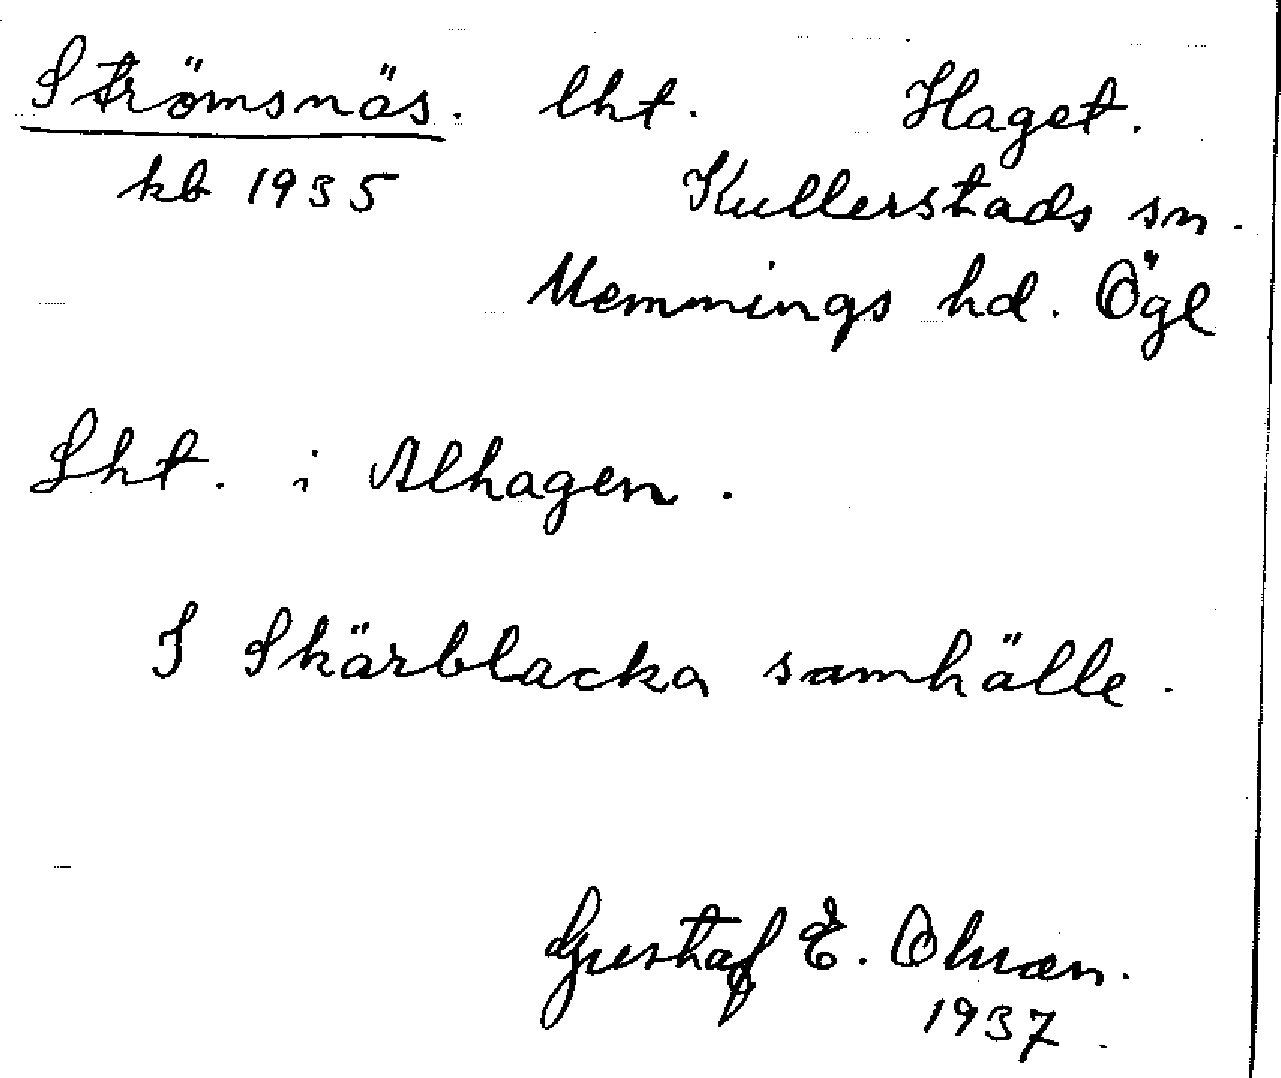 Strömsnäs. lht. Haget.
kb 1935 Kullerstads sn.
Memmings hd. Ögl
Lht. i Alhagen.
I Skärblacka samhälle.
Gustaf E.
1937.